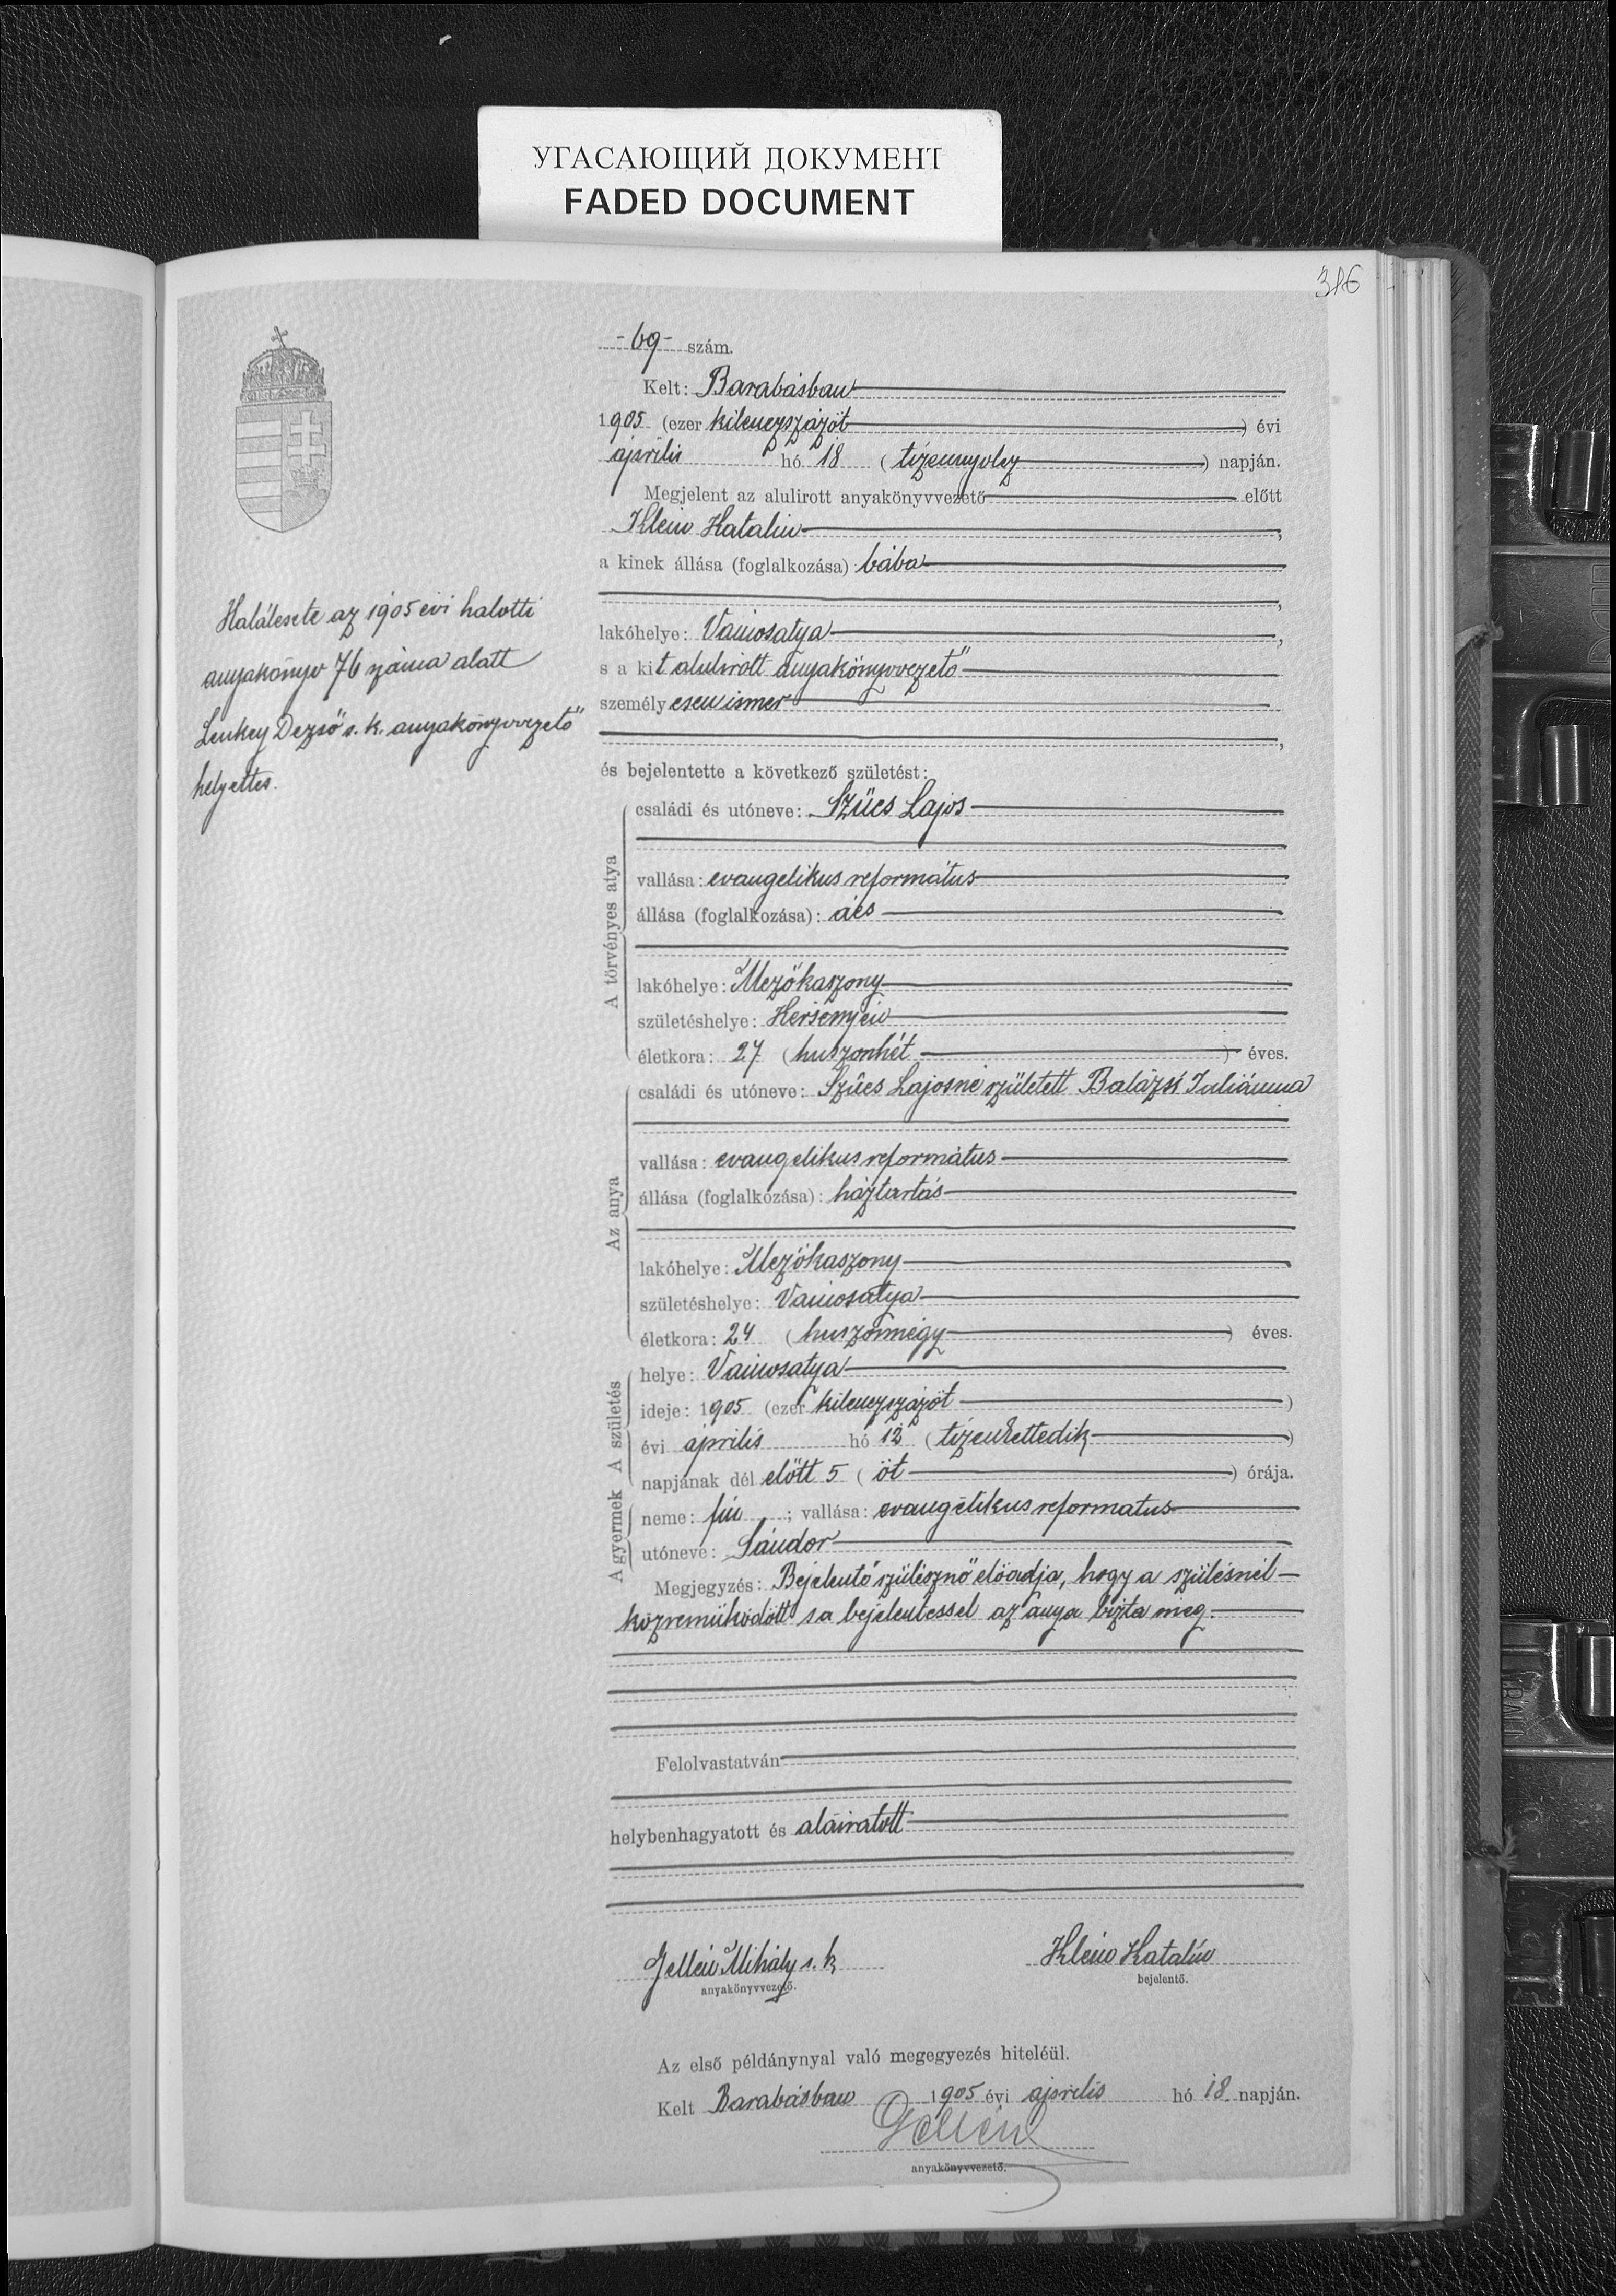 УГАСАЮЩИЙ ДОКУМЕНТ
FADED DOCUMENT
316
-69- szám.
Kelt: Barabásban
1905 (ezer kilenczszázöt) évi
április hó 18 (tizennyolcz) napján.
Megjelent az alulirott anyakönyvvezető előtt
Klein Katalin,
a kinek állása (foglalkozása): bába
,
lakóhelye: Vámosatya,
s a kit alulirott anyakönyvvezető
személyesen ismer
,
és bejelentette a következő születést:
A törvényes atya
családi és utóneve: Szűcs Lajos
vallása: evangelikus református
állása (foglalkozása): ács
lakóhelye: Mezőkaszony
születéshelye:
életkora: 27 (huszonhét) éves.
Az anya
családi és utóneve: Szűcs Lajosné született Balázsi Juliánna
vallása: evangelikus református
állása (foglalkozása): háztartás
lakóhelye: Mezőkaszony
születéshelye: Vámosatya
életkora: 24 (huszonnégy) éves.
A születés
helye: Vámosatya
ideje: 1905 (ezer kilenczszázöt)
évi április hó 12 (tizenkettedik)
napjának dél előtt 5 (öt) órája.
A gyermek
neme: fiú; vallása: evangélikus reformatus
utóneve: Sándor
Megjegyzés: Bejelentő szülésznő előadja, hogy a szülésnél
közreműködött s a bejelentéssel az anya bizta meg.
Felolvastatván
helybenhagyatott és aláiratott
Jellén Mihály s. k.
anyakönyvvezető.
Klein Katalin
bejelentő.
Az első példánynyal való megegyezés hiteléül.
Kelt Barabásban 1905 évi április hó 18 napján.
Jellén
anyakönyvvezető.
Halálesete az 1905 évi halotti
anyakönyv 76 száma alatt
Lenkey Dezső s. k. anyakönyvvezető
helyettes.